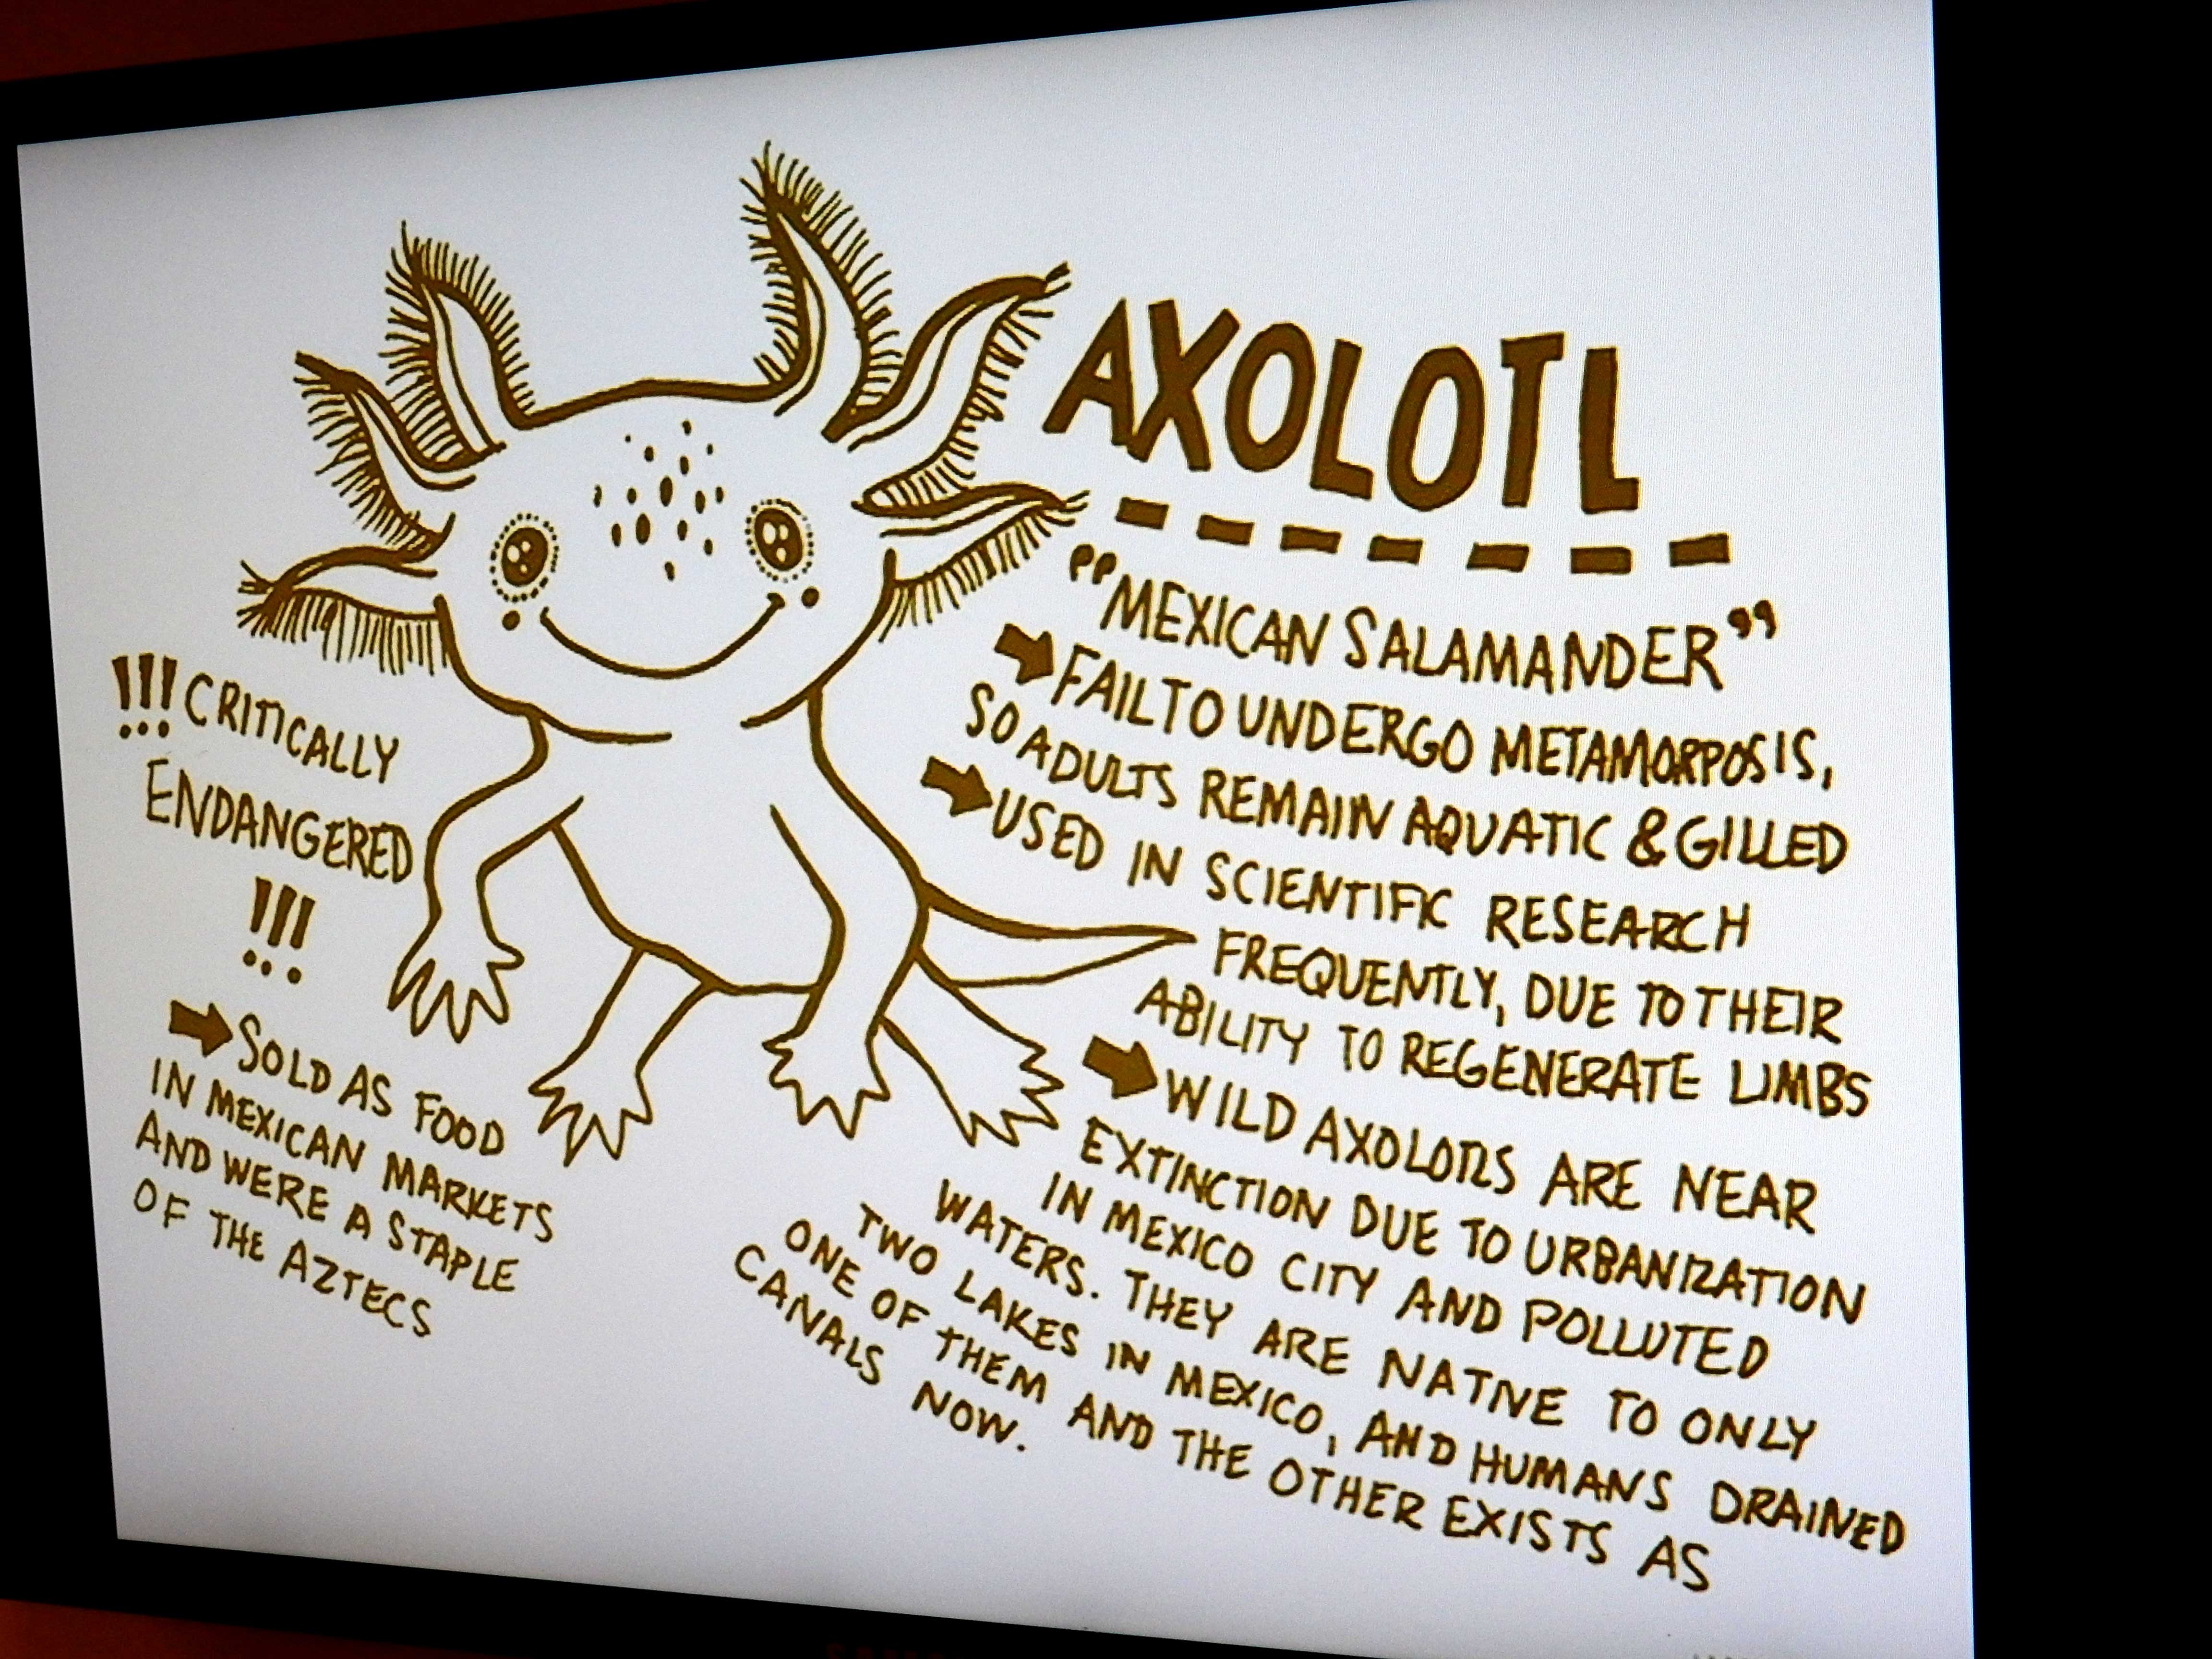 AXOLOTL
"MEXICAN SALAMANDER"
FAIL TO UNDERGO METAMORPOSIS,
SO ADULTS REMAIN AQUATIC & GILLED
USED IN SCIENTIFIC RESEARCH
FREQUENTLY, DUE TO THEIR
ABILITY TO REGENERATE LIMBS
WILD AXOLOTLS ARE NEAR
EXTINCTION DUE TO URBANIZATION
IN MEXICO CITY AND POLLUTED
WATERS. THEY ARE NATIVE TO ONLY
TWO LAKES IN MEXICO, AND HUMANS DRAINED
ONE OF THEM AND THE OTHER EXISTS AS
CANALS NOW.
!!! CRITICALLY
ENDANGERED
!!!
SOLD AS FOOD
IN MEXICAN MARKETS
AND WERE A STAPLE
OF THE AZTECS